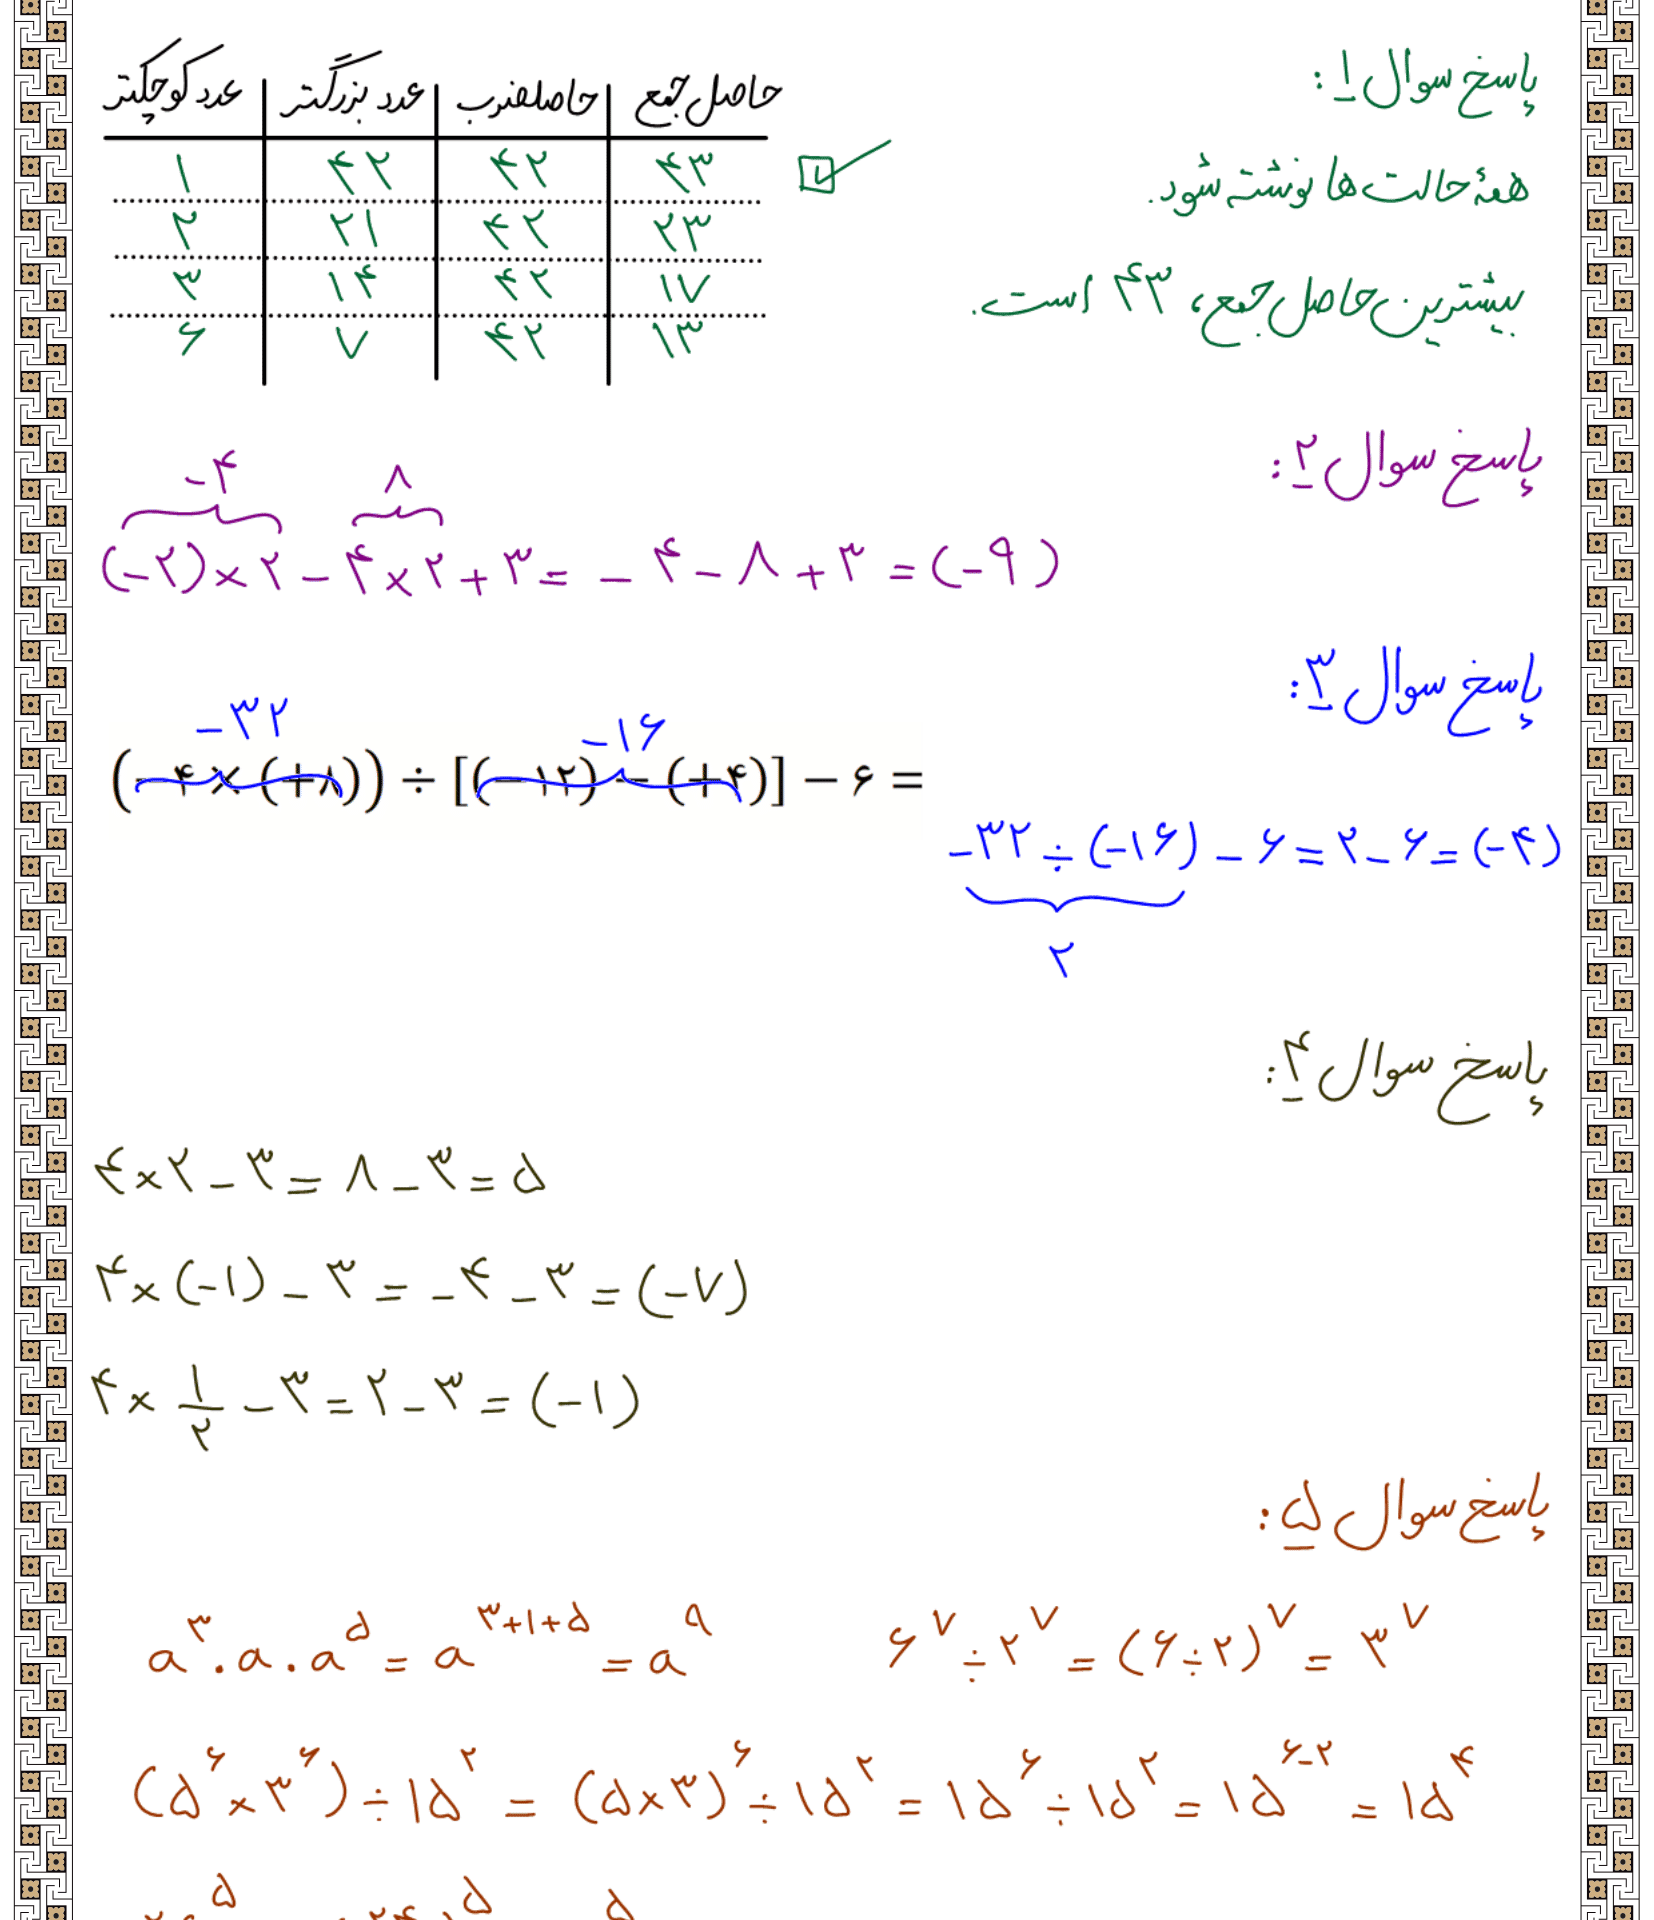 پاسخ سوال ۱:
همهٔ حالت ها نوشته شود.
بیشترین حاصل جمع، ۴۳ است.
عدد کوچکتر | عدد بزرگتر | حاصلضرب | حاصل جمع
۱ | ۴۲ | ۴۲ | ۴۳
۲ | ۲۱ | ۴۲ | ۲۳
۳ | ۱۴ | ۴۲ | ۱۷
۶ | ۷ | ۴۲ | ۱۳
پاسخ سوال ۲:
-۴ ۸
(-۲)×۲ - ۴×۲ + ۳ = -۴ - ۸ + ۳ = (-۹)
پاسخ سوال ۳:
-۳۲ -۱۶
(-۴ × (+۸)) ÷ [(-۱۲) - (+۴)] - ۶ =
-۳۲ ÷ (-۱۶) - ۶ = ۲ - ۶ = (-۴)
۲
پاسخ سوال ۴:
۴×۲ - ۳ = ۸ - ۳ = ۵
۴×(-۱) - ۳ = -۴ - ۳ = (-۷)
۴× ۱/۲ - ۳ = ۲ - ۳ = (-۱)
پاسخ سوال ۵:
a^۳ . a . a^۵ = a^(۳+۱+۵) = a^۹ ۶^۷ ÷ ۲^۷ = (۶÷۲)^۷ = ۳^۷
(۵^۶ × ۳^۶) ÷ ۱۵^۲ = (۵×۳)^۶ ÷ ۱۵^۲ = ۱۵^۶ ÷ ۱۵^۲ = ۱۵^(۶-۲) = ۱۵^۴